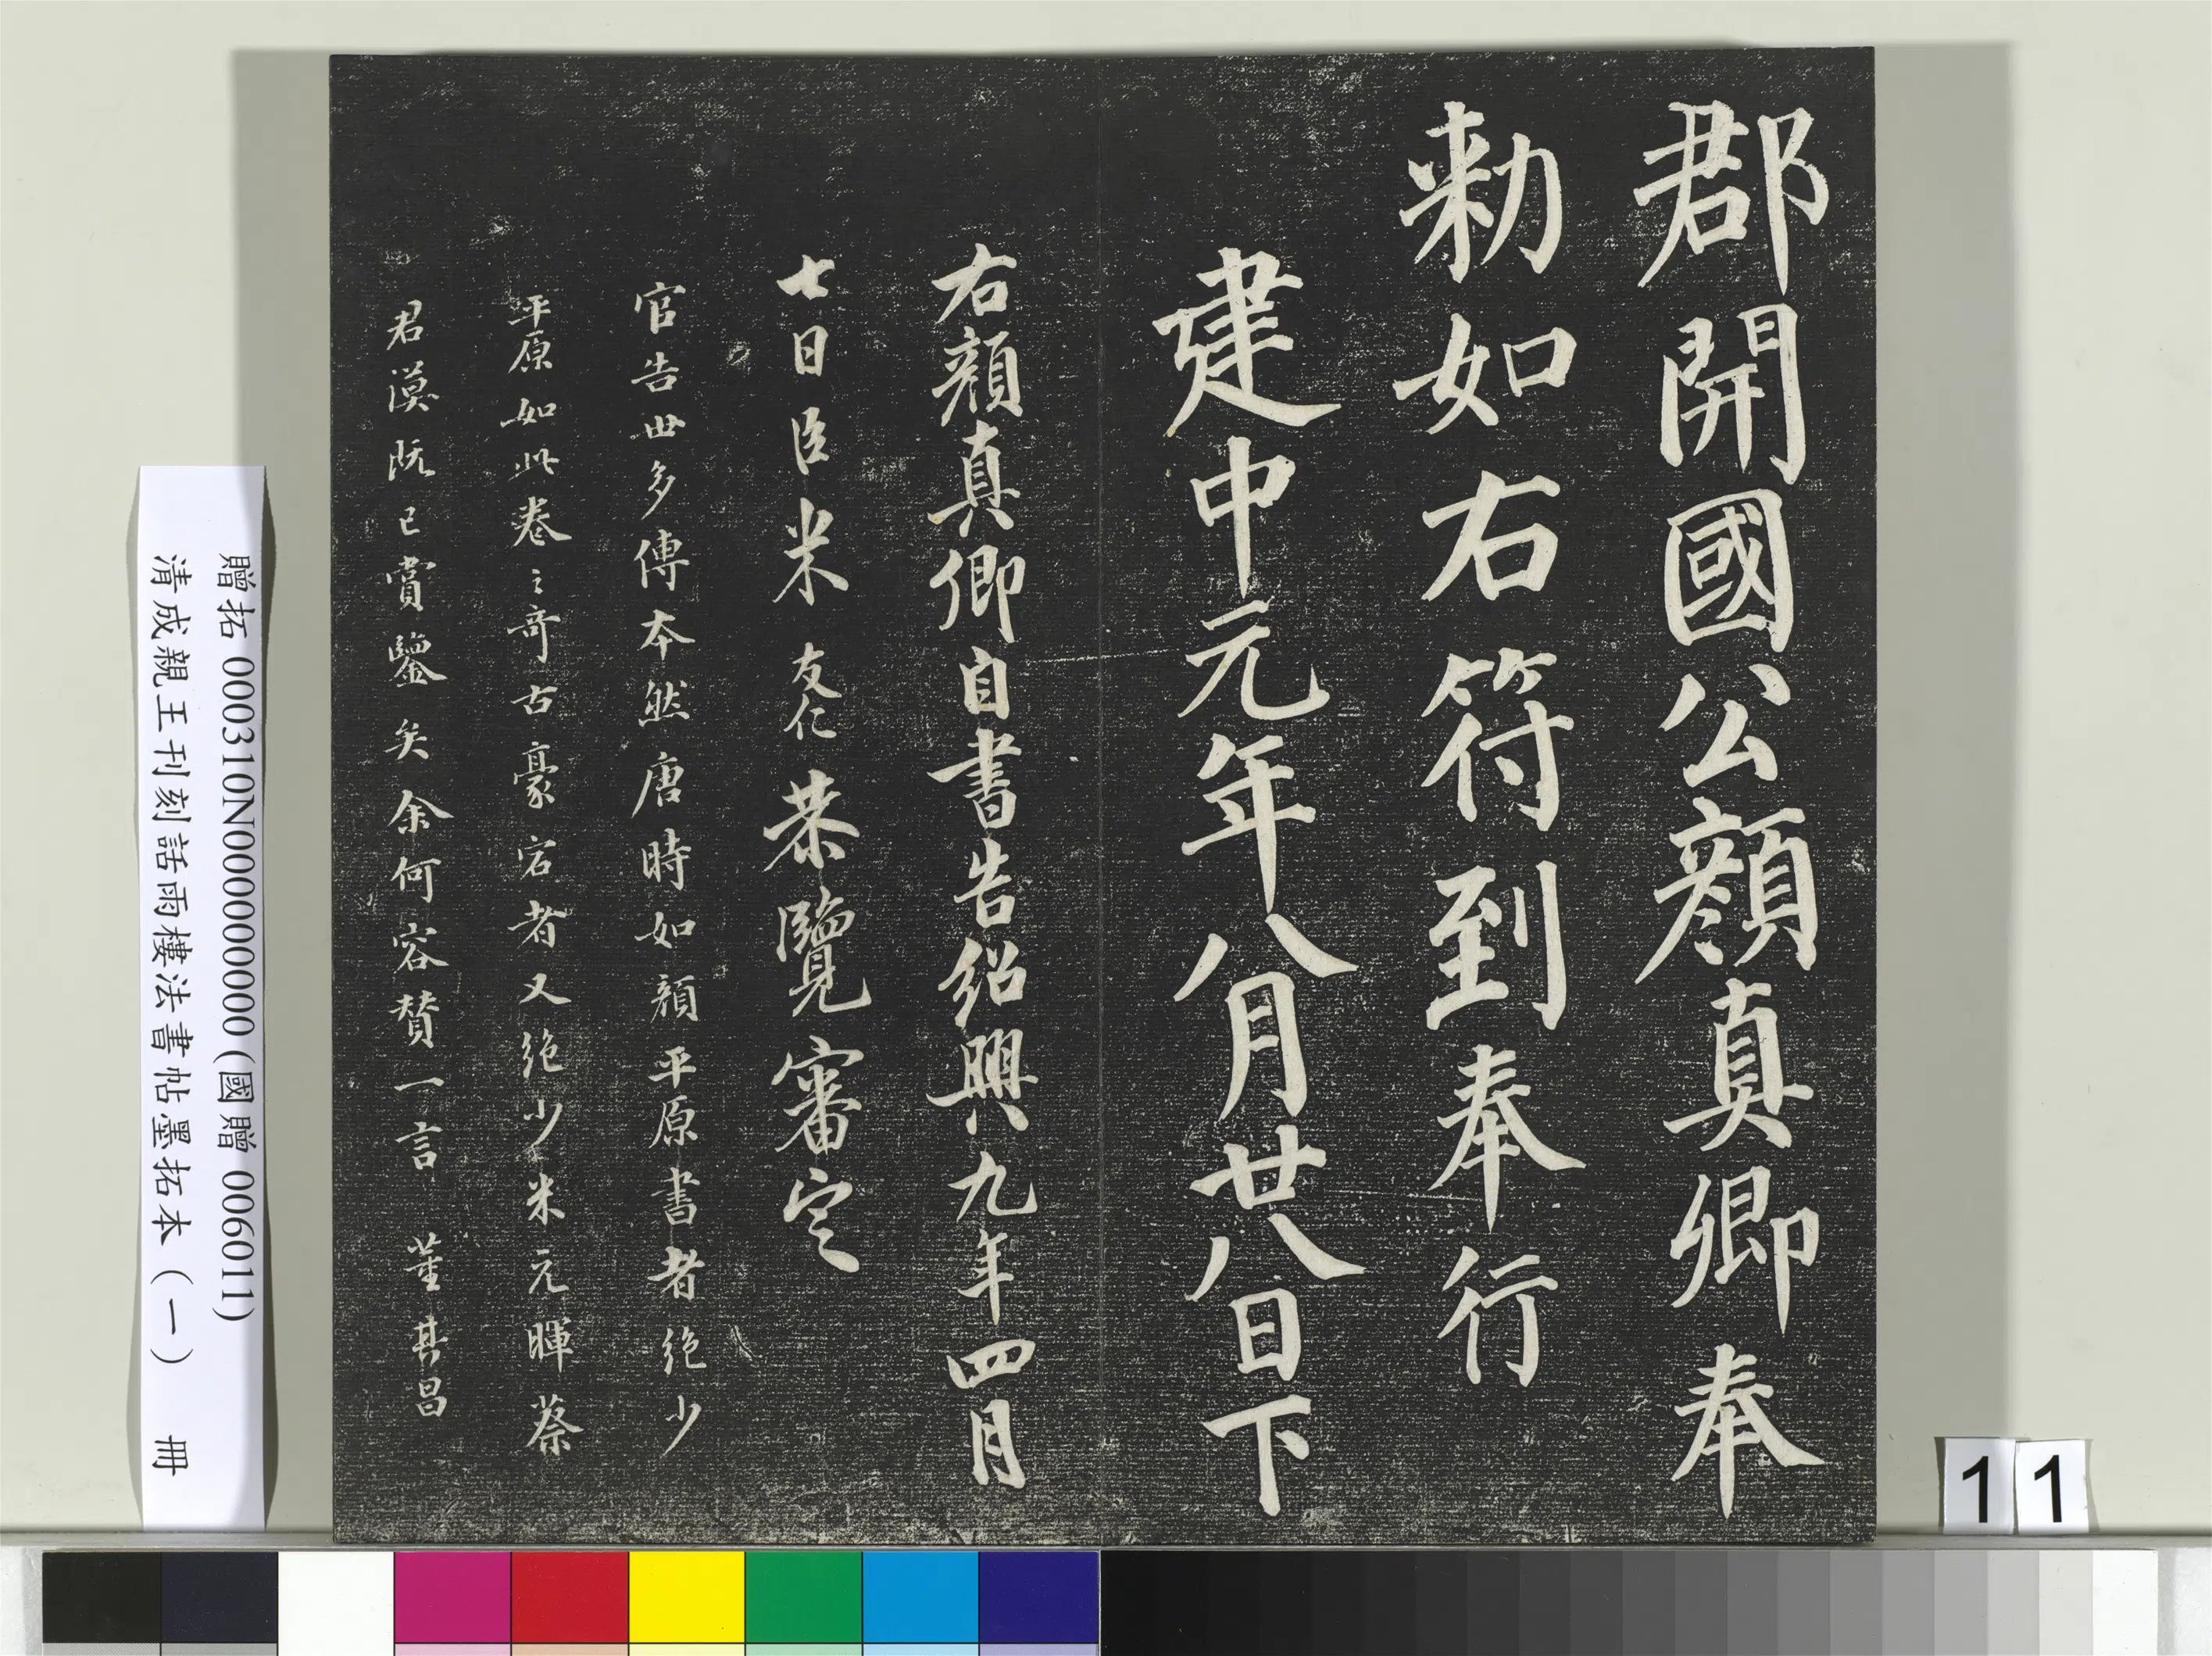 郡開國公顏真卿奉
勑如右符到奉行
建中元年八月廿八日下
右顏真卿自書告紹興九年四月
七日臣米友仁恭覽審定
官告世多傳本然唐時如顏平原書者絕少
平原如此卷之奇古豪宕者又絕少米元暉蔡
君謨既已賞鑒矣余何容贊一言 董其昌
贈拓 000310N000000000 (國贈 006011)
清成親王刊刻話雨樓法書帖墨拓本(一) 冊
11